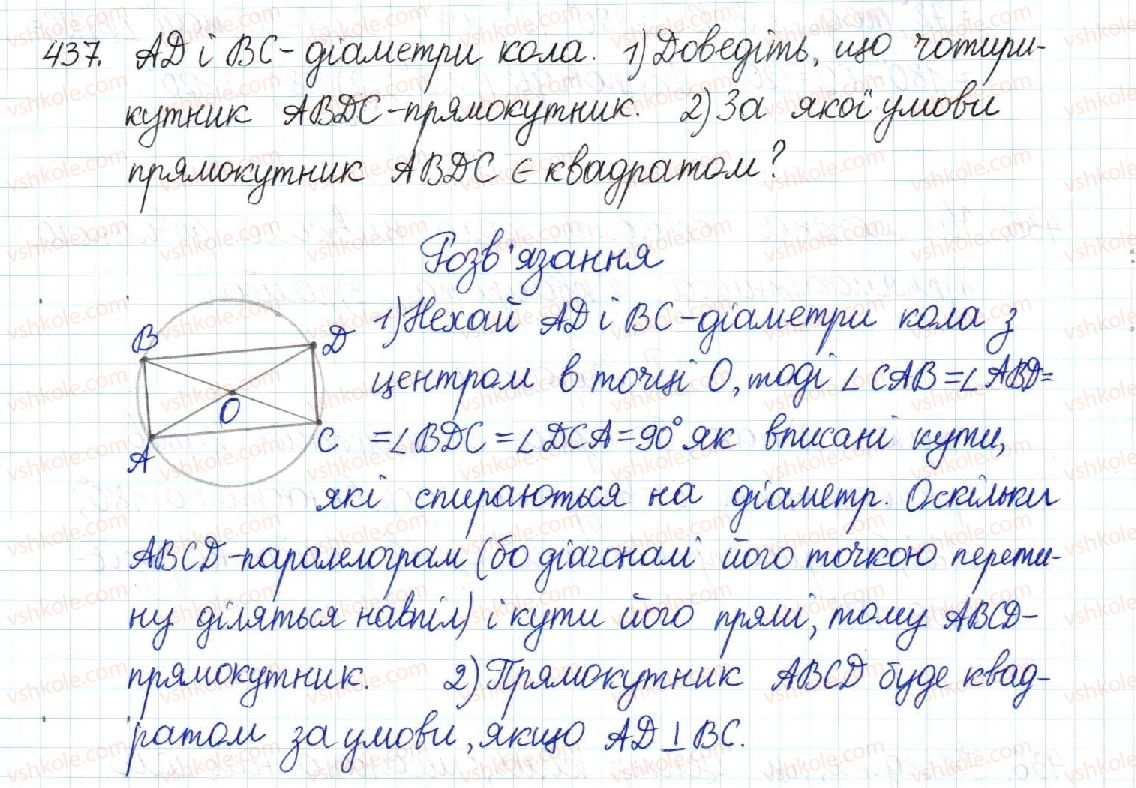 437. AD і BC - діаметри кола. 1) Доведіть, що чотири-
кутник ABDC - прямокутник. 2) За якої умови
прямокутник ABDC є квадратом?
Розв'язання
1) Нехай AD і BC - діаметри кола з
центром в точці O, тоді ∠CAB = ∠ABD =
= ∠BDC = ∠DCA = 90° як вписані кути,
які спираються на діаметр. Оскільки
ABCD - паралелограм (бо діагоналі його точкою перети-
ну діляться навпіл) і кути його прямі, тому ABCD -
прямокутник. 2) Прямокутник ABCD буде квад-
ратом за умови, якщо AD ⊥ BC.
B
D
O
A
C
vshkole.com